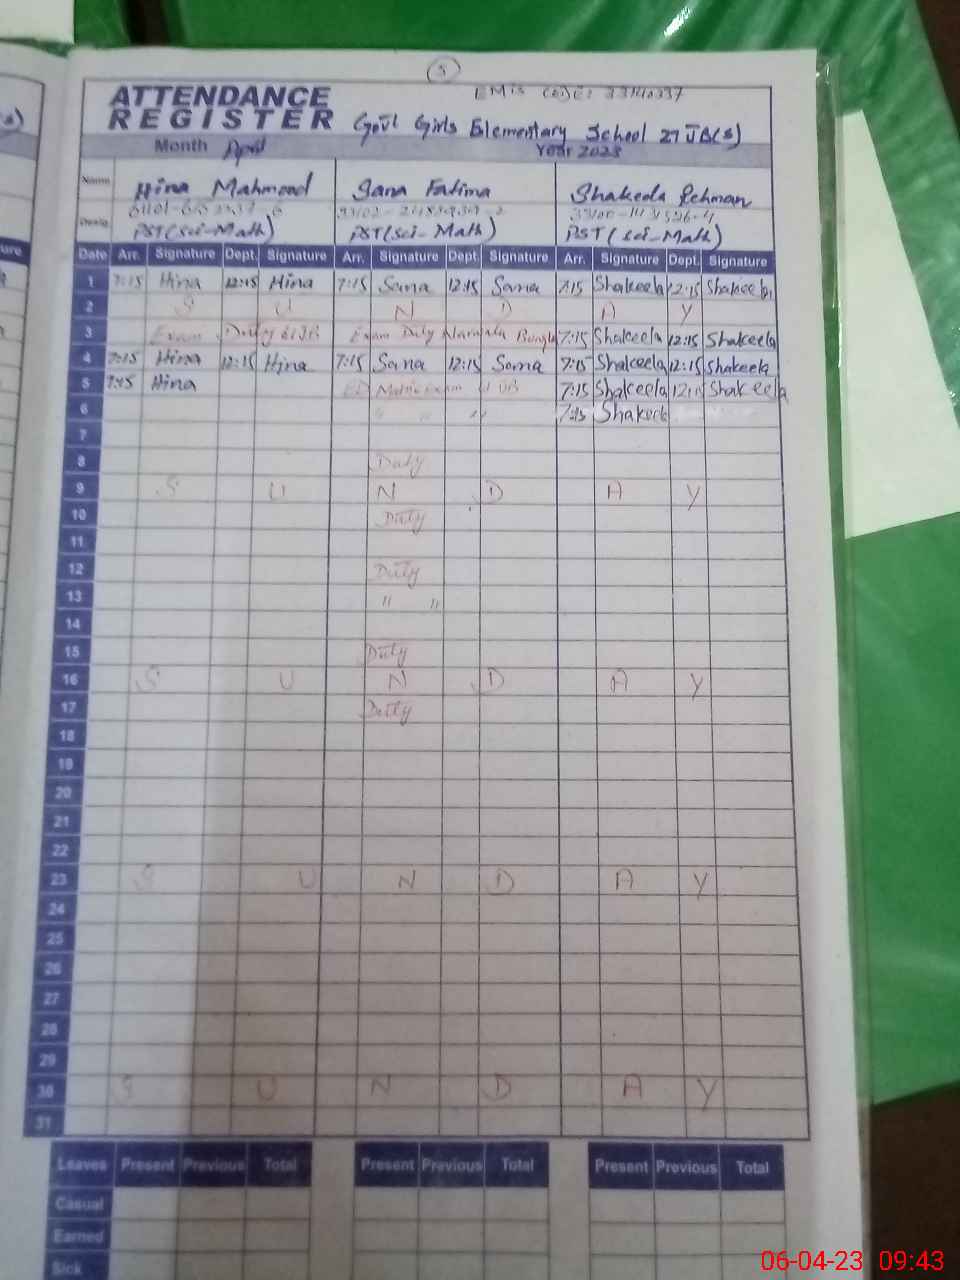 5
EMIS CODE: 33140337
ATTENDANCE
REGISTER Govt Girls Elementary School 27 JB(S)
Month April Year 2023
Name Hina Mahmood Sana Fatima Shakeela Rehman
Desig. PST (Sci-Math) PST (Sci-Math) PST (Sci-Math)
Date Arr. Signature Dept. Signature Arr. Signature Dept. Signature Arr. Signature Dept. Signature
1 7:15 Hina 12:15 Hina 7:15 Sana 12:15 Sana 7:15 Shakeela 12:15 Shakeela
2 S U N D A Y
3 Exam Duty Exam Duty 7:15 Shakeela 12:15 Shakeela
4 7:15 Hina 12:15 Hina 7:15 Sana 12:15 Sana 7:15 Shakeela 12:15 Shakeela
5 7:15 Hina 7:15 Shakeela Shakeela
6 " " " 7:15 Shakeela
7
8 Duty
9 S U N D A Y
10 Duty
11
12 Duty
13 " "
14
15 Duty
16 S U N D A Y
17 Duty
18
19
20
21
22
23 S U N D A Y
24
25
26
27
28
29
30 S U N D A Y
31
Leaves Present Previous Total Present Previous Total Present Previous Total
Casual
Earned
Sick
06-04-23 09:43